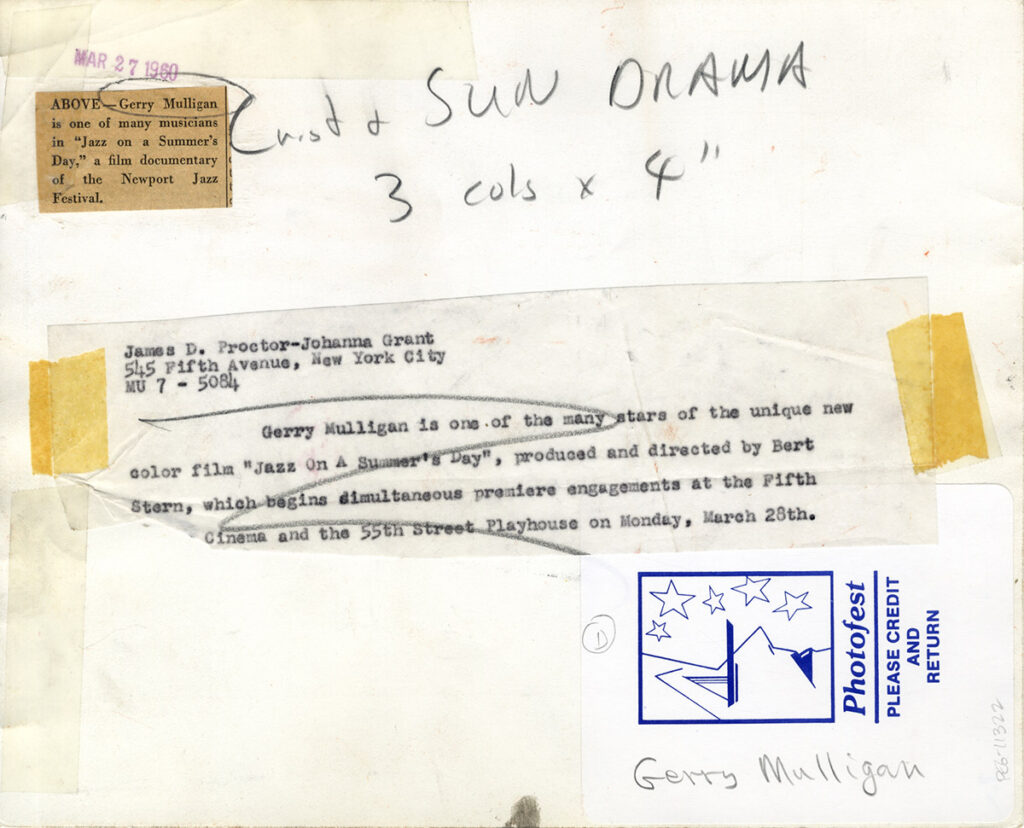 MAR 27 1960
ABOVE—Gerry Mulligan
is one of many musicians
in "Jazz on a Summer's
Day," a film documentary
of the Newport Jazz
Festival.
SUN DRAMA
3 cols x 4"
James D. Proctor-Johanna Grant
545 Fifth Avenue, New York City
MU 7 - 5084
Gerry Mulligan is one of the many stars of the unique new
color film "Jazz On A Summer's Day", produced and directed by Bert
Stern, which begins simultaneous premiere engagements at the Fifth
Cinema and the 55th Street Playhouse on Monday, March 28th.
Photofest
PLEASE CREDIT
AND
RETURN
Gerry Mulligan